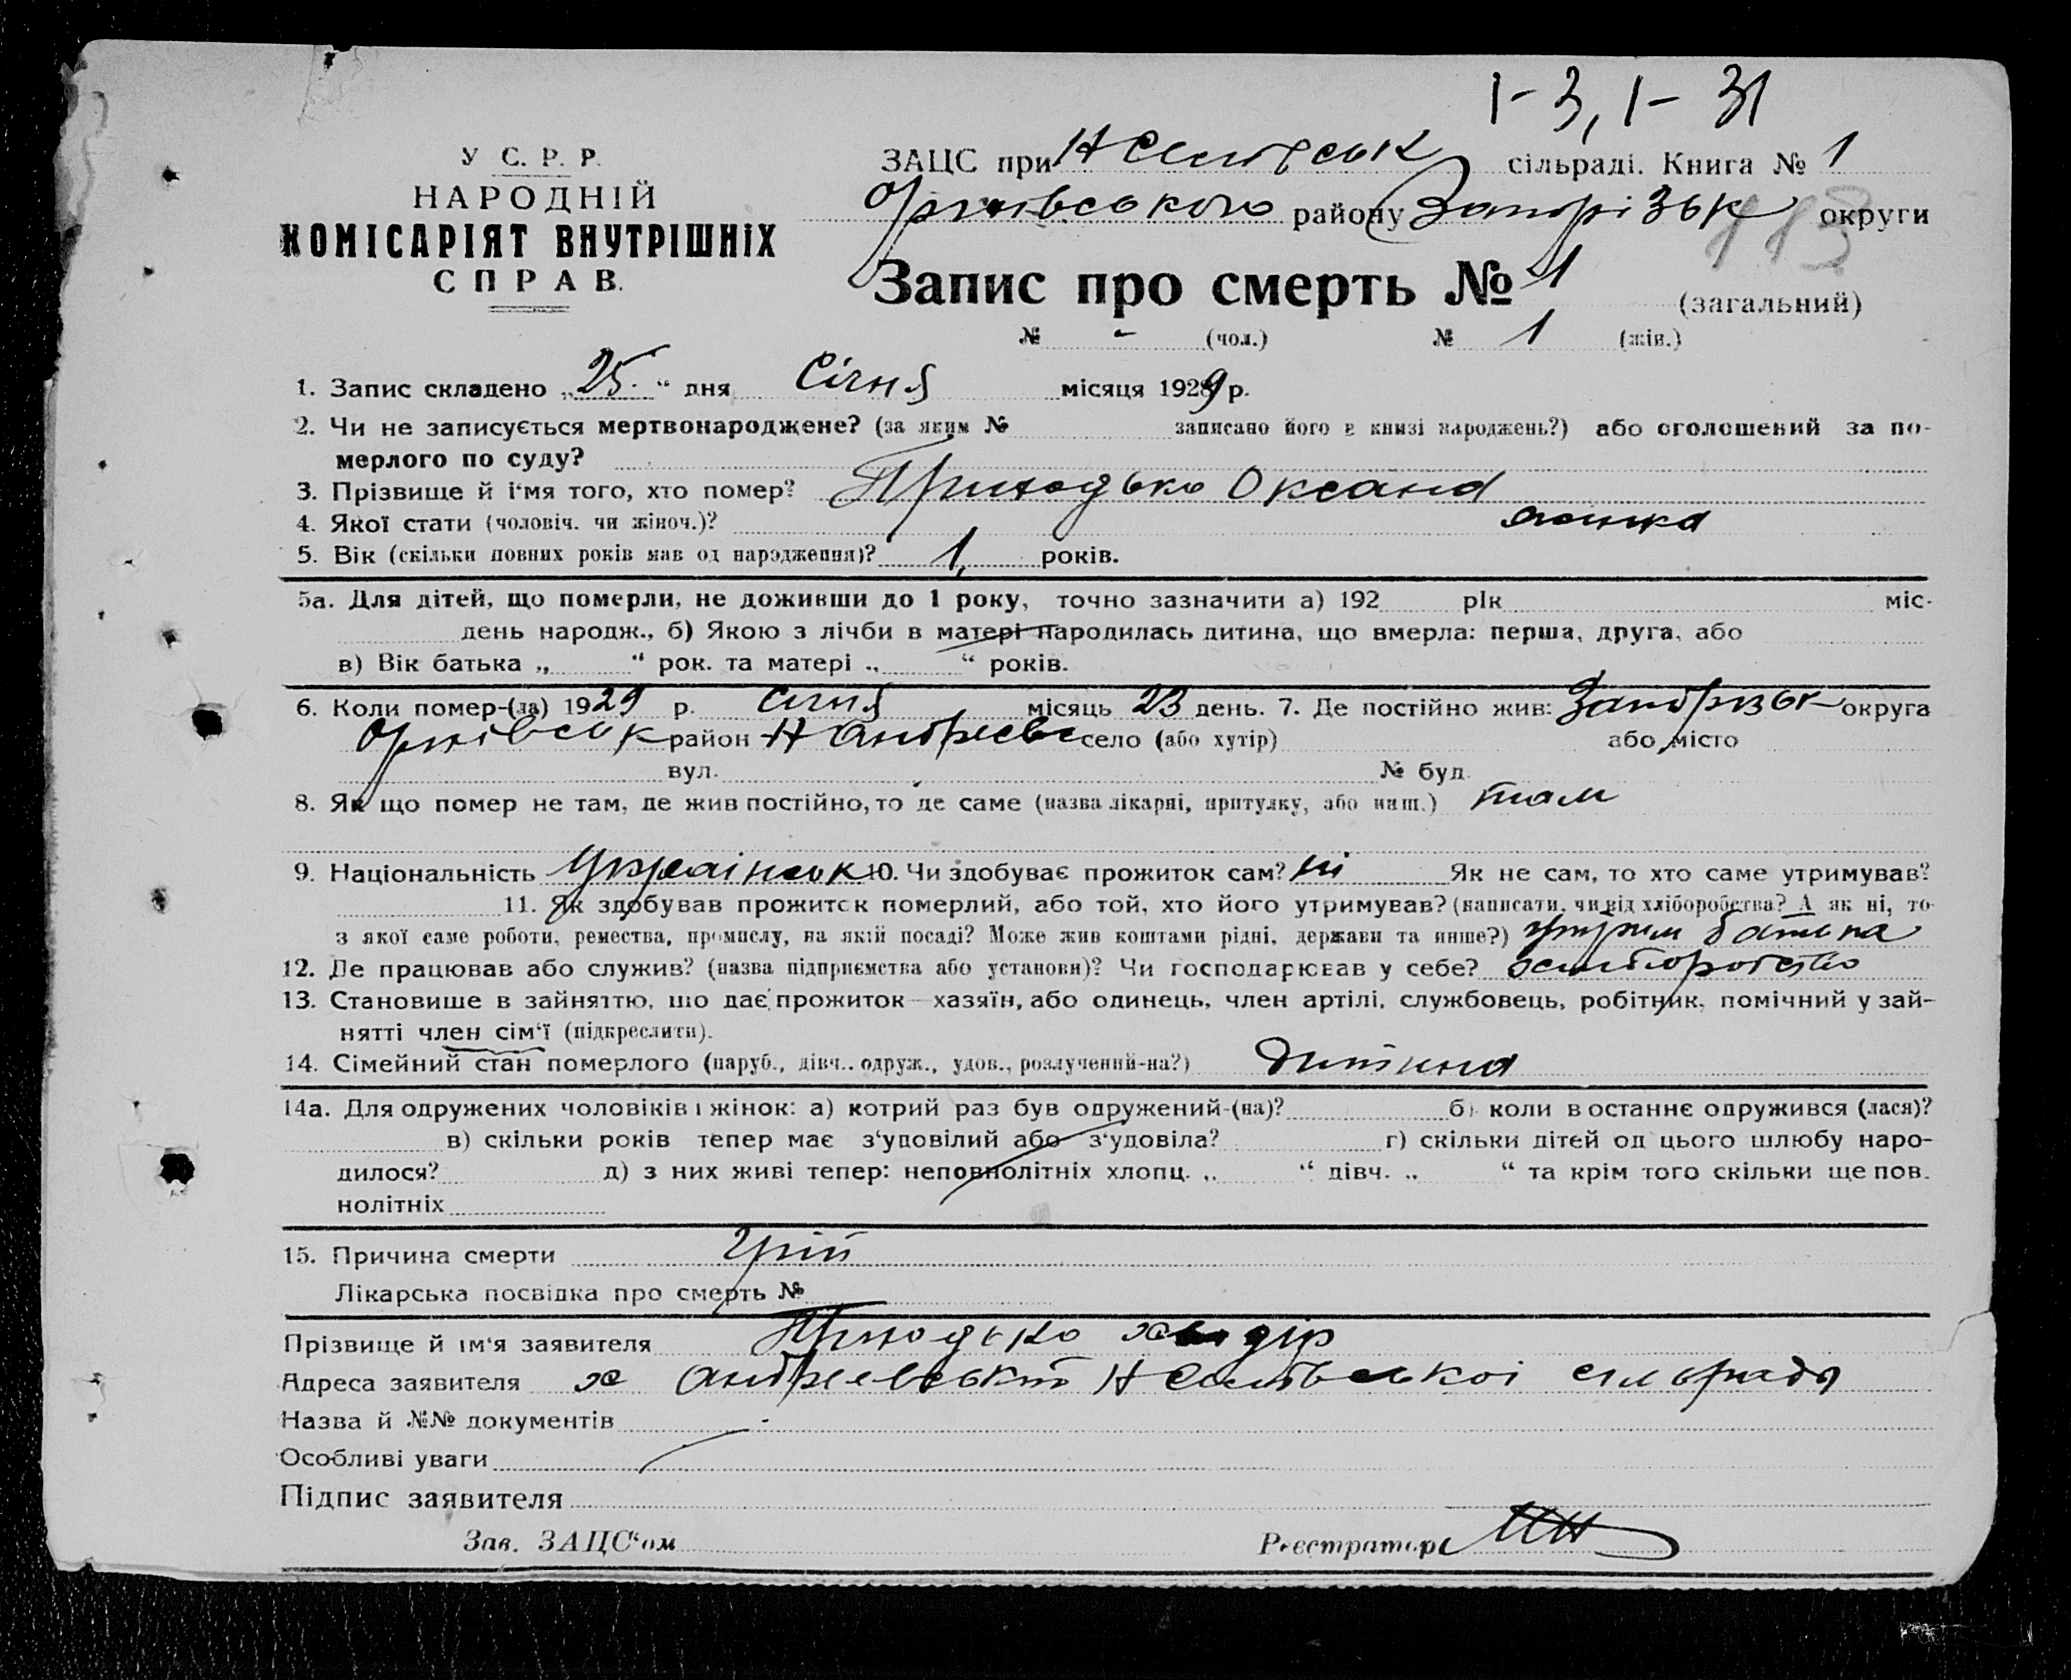 1-3, 1-31
У С. Р. Р.
НАРОДНІЙ
КОМІСАРІЯТ ВНУТРІШНІХ
СПРАВ.
ЗАЦС при сільраді. Книга № 1
Оріхівського району Запорізьк округи
113
Запис про смерть № 1 (загальний)
№ - (чол.) № 1 (жін.)
1. Запис складено „25" дня Січня місяця 1929 р.
2. Чи не записується мертвонароджене? (за яким № записано його в книзі народжень?) або оголошений за по-
мерлого по суду?
3. Прізвище й і'мя того, хто помер? Приходько Оксана
4. Якої стати (чоловіч. чи жіноч.)? жінка
5. Вік (скільки повних років мав од народження)? 1, років.
5а. Для дітей, що померли, не доживши до 1 року, точно зазначити а) 192 рік міс.
день народж., б) Якою з лічби в матері народилась дитина, що вмерла: перша, друга, або
в) Вік батька „ " рок. та матері „ " років.
6. Коли помер-(ла) 1929 р. Січня місяць 23 день. 7. Де постійно жив: Запорізьк округа
Оріхівськ район село (або хутір) або місто
вул. № буд.
8. Як що помер не там, де жив постійно, то де саме (назва лікарні, притулку, або инш.) там
9. Національність Українськ 10. Чи здобуває прожиток сам? ні Як не сам, то хто саме утримував?
11. Як здобував прожиток померлий, або той, хто його утримував? (написати, чи від хліборобства? А як ні, то
з якої саме роботи, ремества, промислу, на якій посаді? Може жив коштами рідні, держави та инше?) утрим батька
12. Де працював або служив? (назва підприємства або установи)? Чи господарював у себе? хліборобство
13. Становище в зайняттю, що дає прожиток—хазяїн, або одинець, член артілі, службовець, робітник, помічний у зай-
нятті член сім'ї (підкреслити).
14. Сімейний стан померлого (паруб., дівч., одруж., удов., розлучений-на?) дитина
14а. Для одружених чоловіків і жінок: а) котрий раз був одружений-(на)? б) коли в останнє одружився (лася)?
в) скільки років тепер має з'удовілий або з'удовіла? г) скільки дітей од цього шлюбу наро-
дилося? д) з них живі тепер: неповнолітніх хлопц. „ " дівч. „ " та крім того скільки ще пов.
нолітніх
15. Причина смерти Гріп
Лікарська посвідка про смерть №
Прізвище й ім'я заявителя Приходько
Адреса заявителя х сільради
Назва й №№ документів -
Особливі уваги
Підпис заявителя
Зав. ЗАЦС'ом Реєстратор